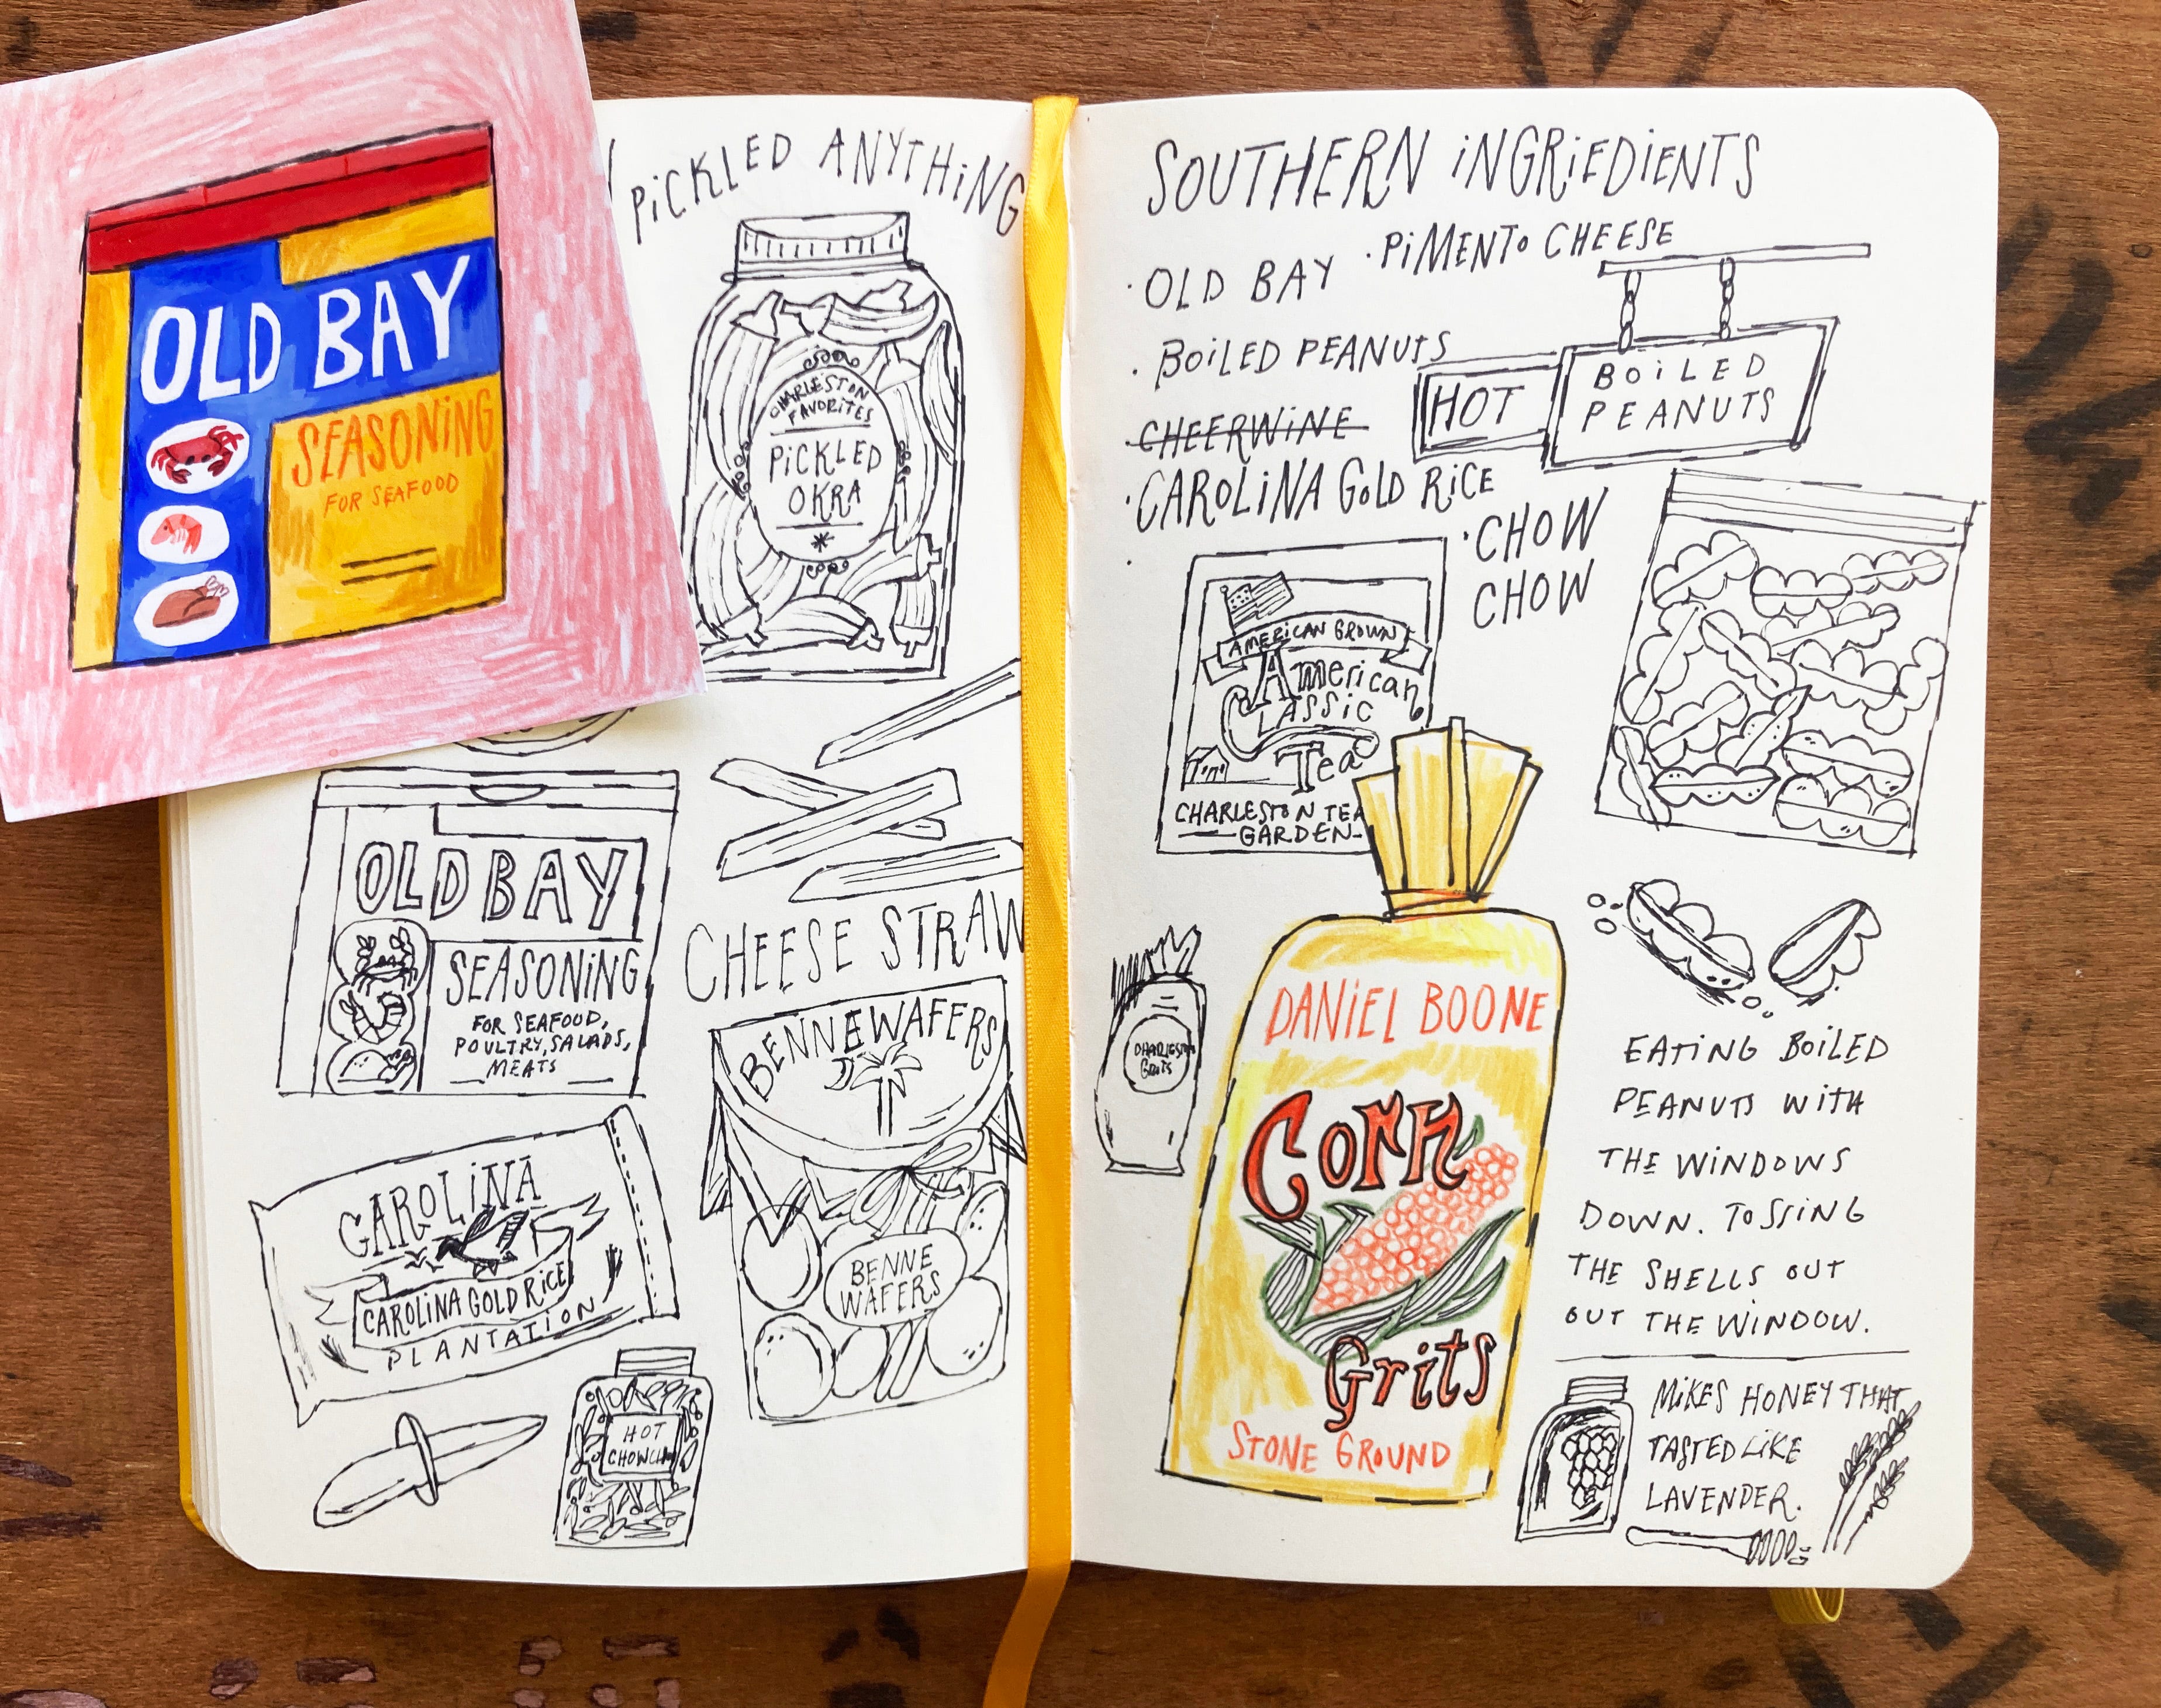 OLD BAY
SEASONING
FOR SEAFOOD
PICKLED ANYTHING
CHARLESTON
FAVORITES
PICKLED
OKRA
OLD BAY
SEASONING
FOR SEAFOOD,
POULTRY, SALADS,
MEATS
CHEESE STRAW
BENNE WAFERS
BENNE
WAFERS
CAROLINA
CAROLINA GOLD RICE
PLANTATION
HOT
SOUTHERN INGRIEDIENTS
· PIMENTO CHEESE
· OLD BAY
· BOILED PEANUTS
HOT
BOILED
PEANUTS
· CHEERWINE
· CAROLINA GOLD RICE
· CHOW
CHOW
AMERICAN GROWN
American
Classic
Tea
CHARLESTON TEA
GARDEN
GRITS
DANIEL BOONE
Corn
Grits
STONE GROUND
EATING BOILED
PEANUTS WITH
THE WINDOWS
DOWN. TOSSING
THE SHELLS OUT
OUT THE WINDOW.
MIKES HONEY THAT
TASTED LIKE
LAVENDER.